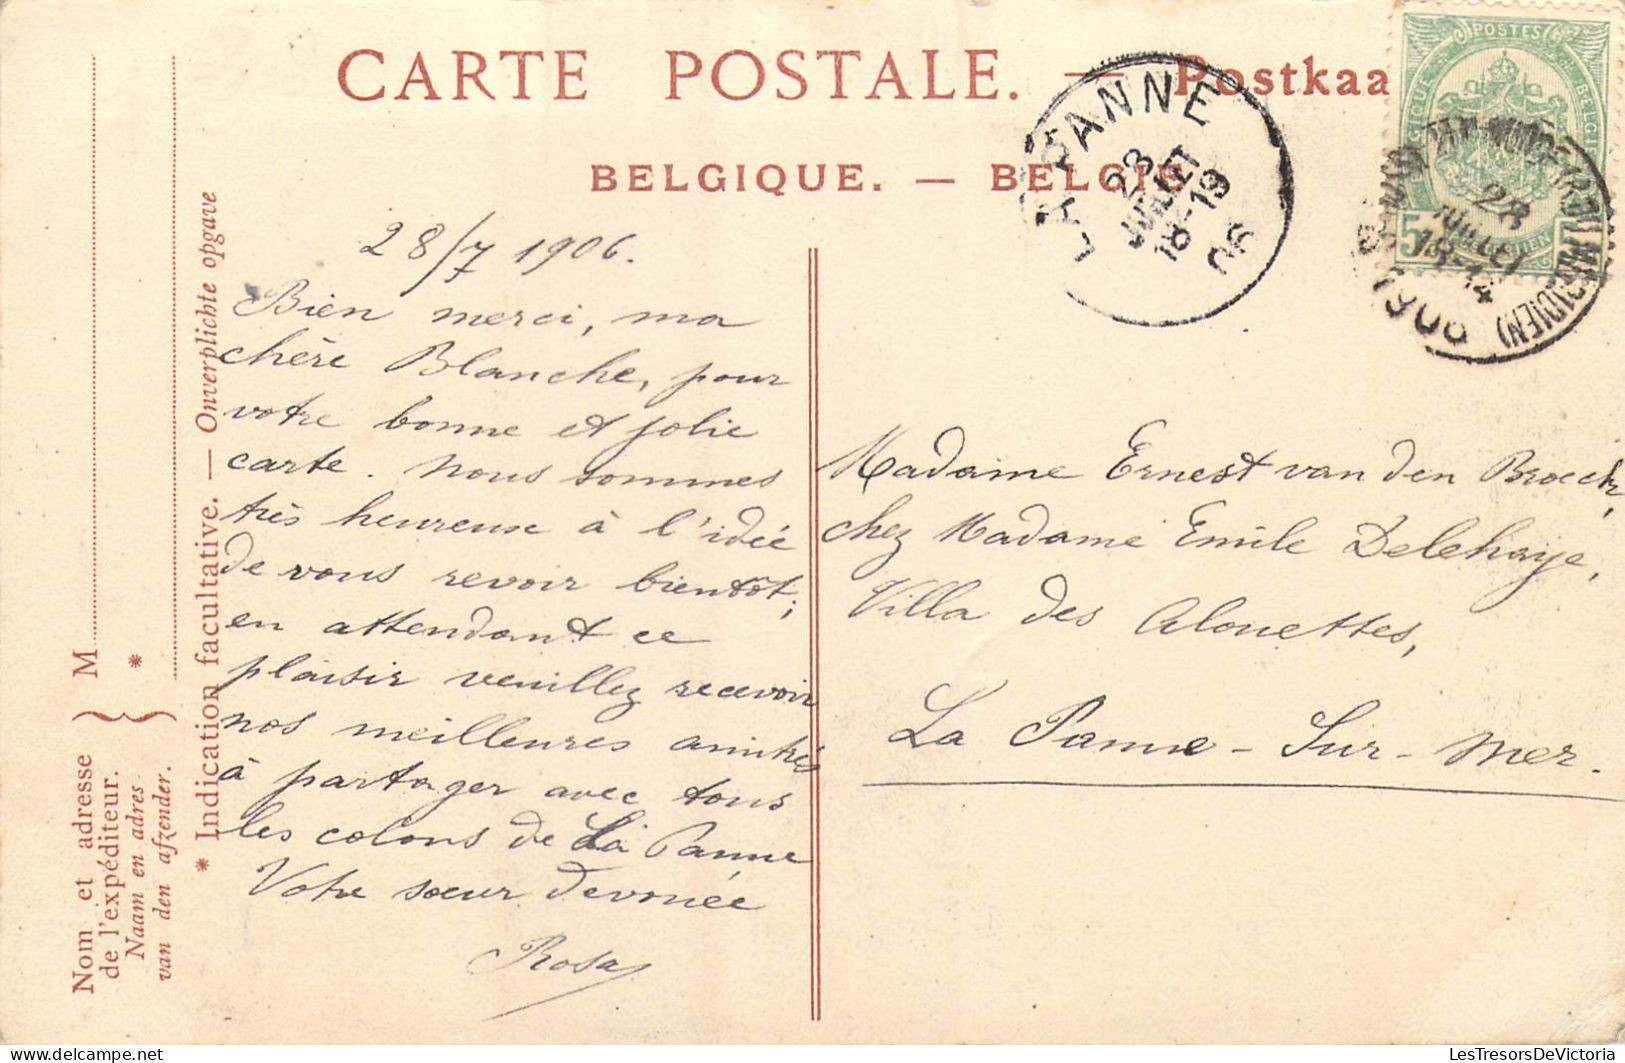 CARTE POSTALE. — Postkaa
BELGIQUE. — BELGIE
LA PANNE
28
JUILLET
18-19
06
POSTES
BELGIQUE
BELGIE
5
28
JUILLET
13-14
1906
(ROI MERIDIEN)
28/7 1906.
Bien merci, ma
chère Blanche, pour
votre bonne et jolie
carte. Nous sommes
très heureuse à l'idée
de vous revoir bientôt;
en attendant ce
plaisir veuillez recevoir
nos meilleures amitiés
à partager avec tous
les colons de La Panne
Votre sœur dévouée
Rosa
Madame Ernest van den Broeck,
chez Madame Emile Delehaye,
Villa des Alouettes,
La Panne-Sur-mer.
M
*
Nom et adresse
de l'expéditeur.
Naam en adres
van den afzender.
* Indication facultative. — Onverplichte opgave
LesTresorsDeVictoria.com
LesTresorsDeVictoria